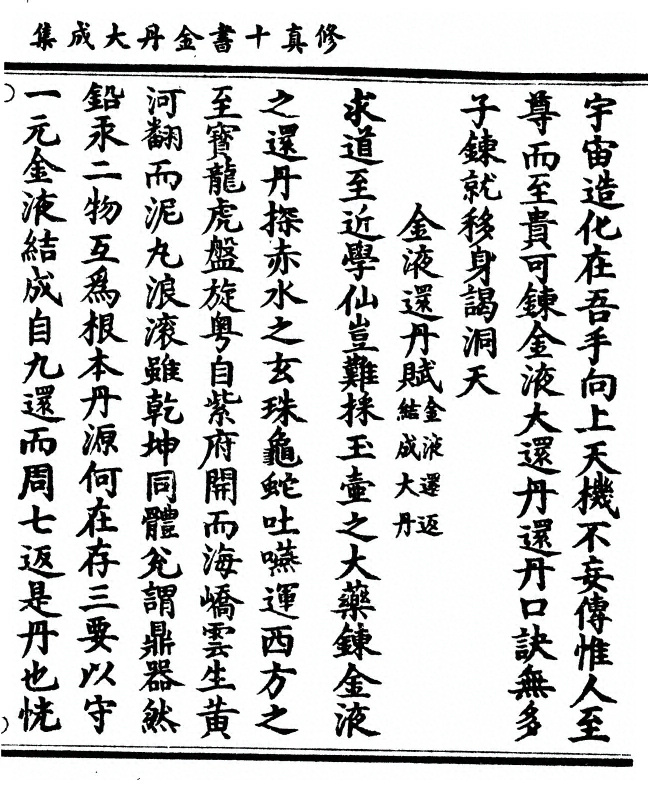 修真十書金丹大成集
宇宙造化在吾手向上天機不妄傳惟人至
尊而至貴可鍊金液大還丹還丹口訣無多
子鍊就移身謁洞天
金液還丹賦金液還返結成大丹
求道至近學仙豈難採玉壺之大藥鍊金液
之還丹探赤水之玄珠龜蛇吐嚥運西方之
至寶龍虎盤旋粤自紫府開而海嶠雲生黄
河翻而泥丸浪滚雖乾坤同體兊謂鼎器然
鉛汞二物互爲根本丹源何在存三要以守
一元金液結成自九還而周七返是丹也恍